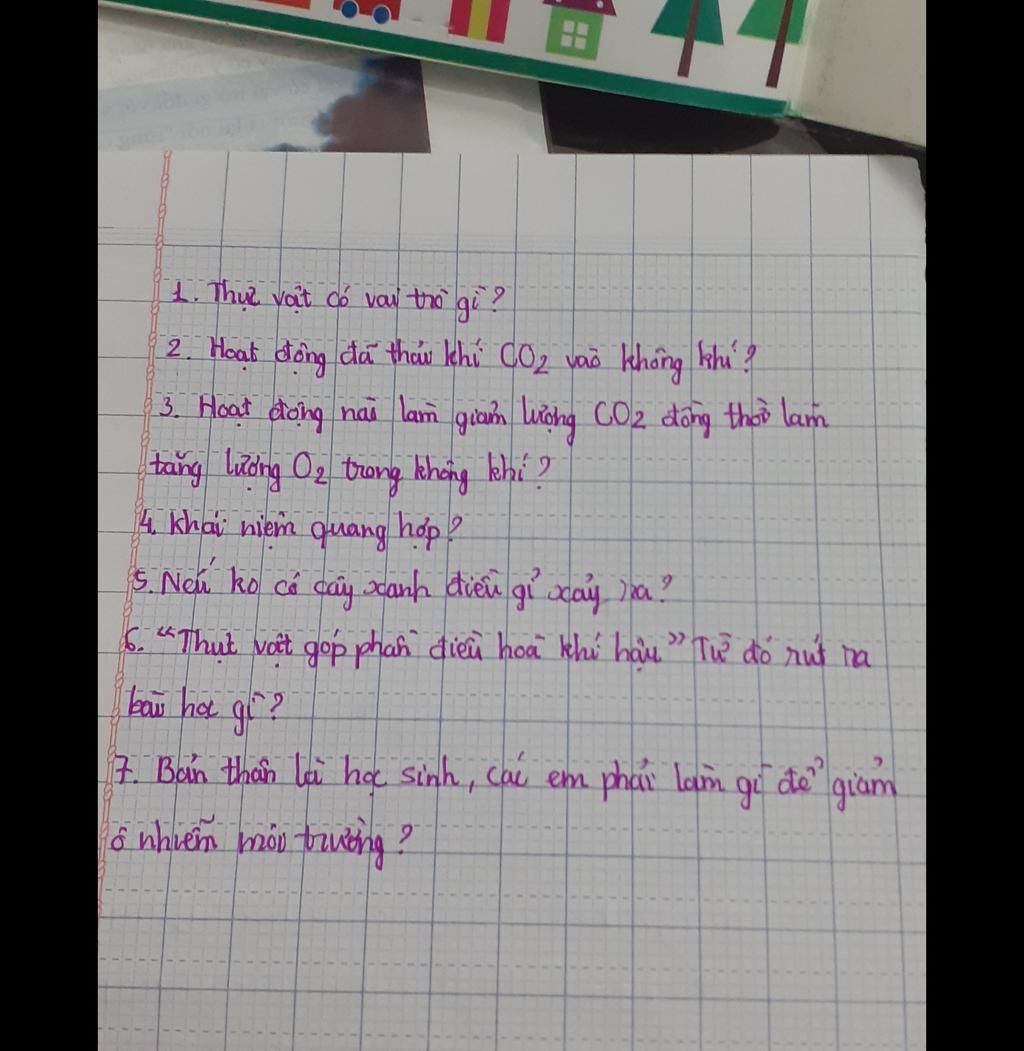 1. Thực vật có vai trò gì?
2. Hoạt động đã thải khí CO2 vào không khí?
3. Hoạt động nào làm giảm lượng CO2 đồng thời làm
tăng lượng O2 trong không khí?
4. Khái niệm quang hợp?
5. Nếu ko có cây xanh điều gì xảy ra?
6. "Thực vật góp phần điều hoà khí hậu" Từ đó rút ra
bài học gì?
7. Bản thân là học sinh, các em phải làm gì để giảm
ô nhiễm môi trường?